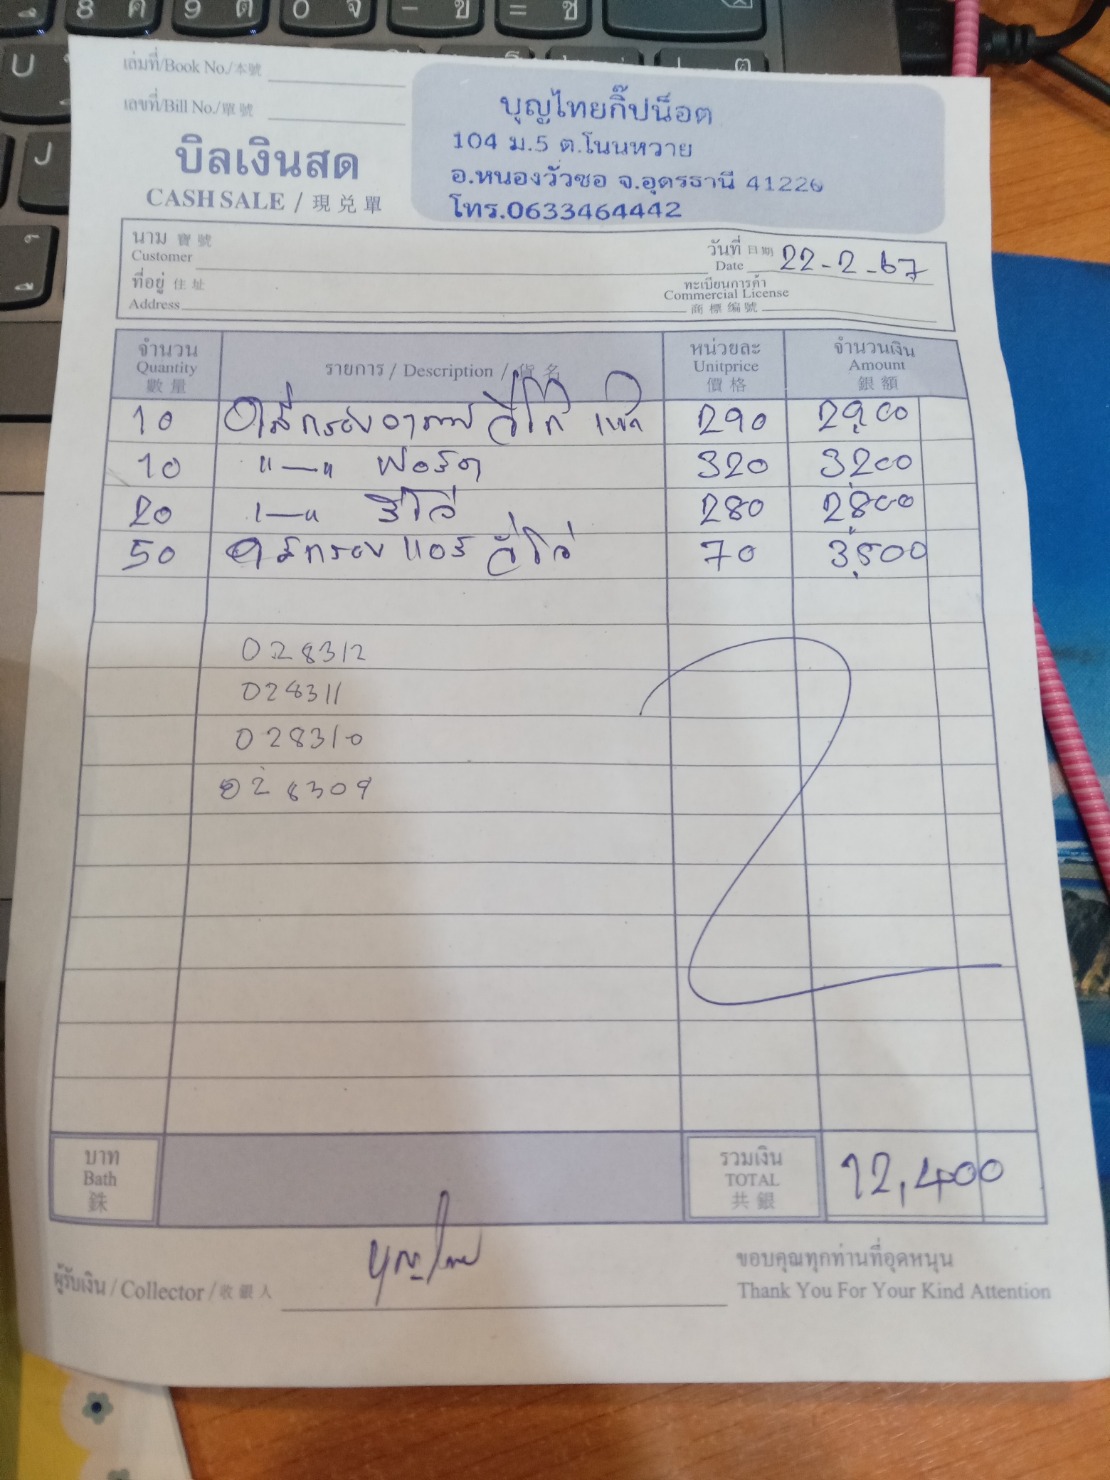 เล่มที่/Book No./本號
เลขที่/Bill No./單號
บิลเงินสด
CASH SALE / 現兌單
บุญไทยกิ๊ปน็อต
104 ม.5 ต.โนนหวาย
อ.หนองวัวซอ จ.อุดรธานี 41220
โทร.0633464442
นาม 寶號
Customer
วันที่ 日期
Date 22-2-67
ที่อยู่ 住址
Address
ทะเบียนการค้า
Commercial License
商標編號
จำนวน Quantity 數量
รายการ / Description / 貨名
หน่วยละ Unitprice 價格
จำนวนเงิน Amount 銀額
10 290 2900
10 "—" ฟอร์ด 320 3200
20 "—" วีโก้ 280 2800
50 70 3,500
028312
028311
028310
028309
บาท
Bath
銖
รวมเงิน
TOTAL
共銀
12,400
ผู้รับเงิน / Collector / 收銀人
บุญไทย
ขอบคุณทุกท่านที่อุดหนุน
Thank You For Your Kind Attention